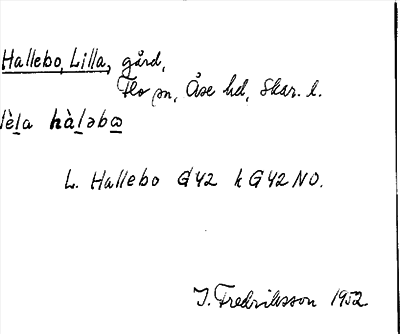 Hallebo, Lilla, gård,
Flo sn, Åse hd, Skar. l.
lèl̲a hàl̲əbω̲
L. Hallebo G42 k G42NO.
J. Fredriksson 1952